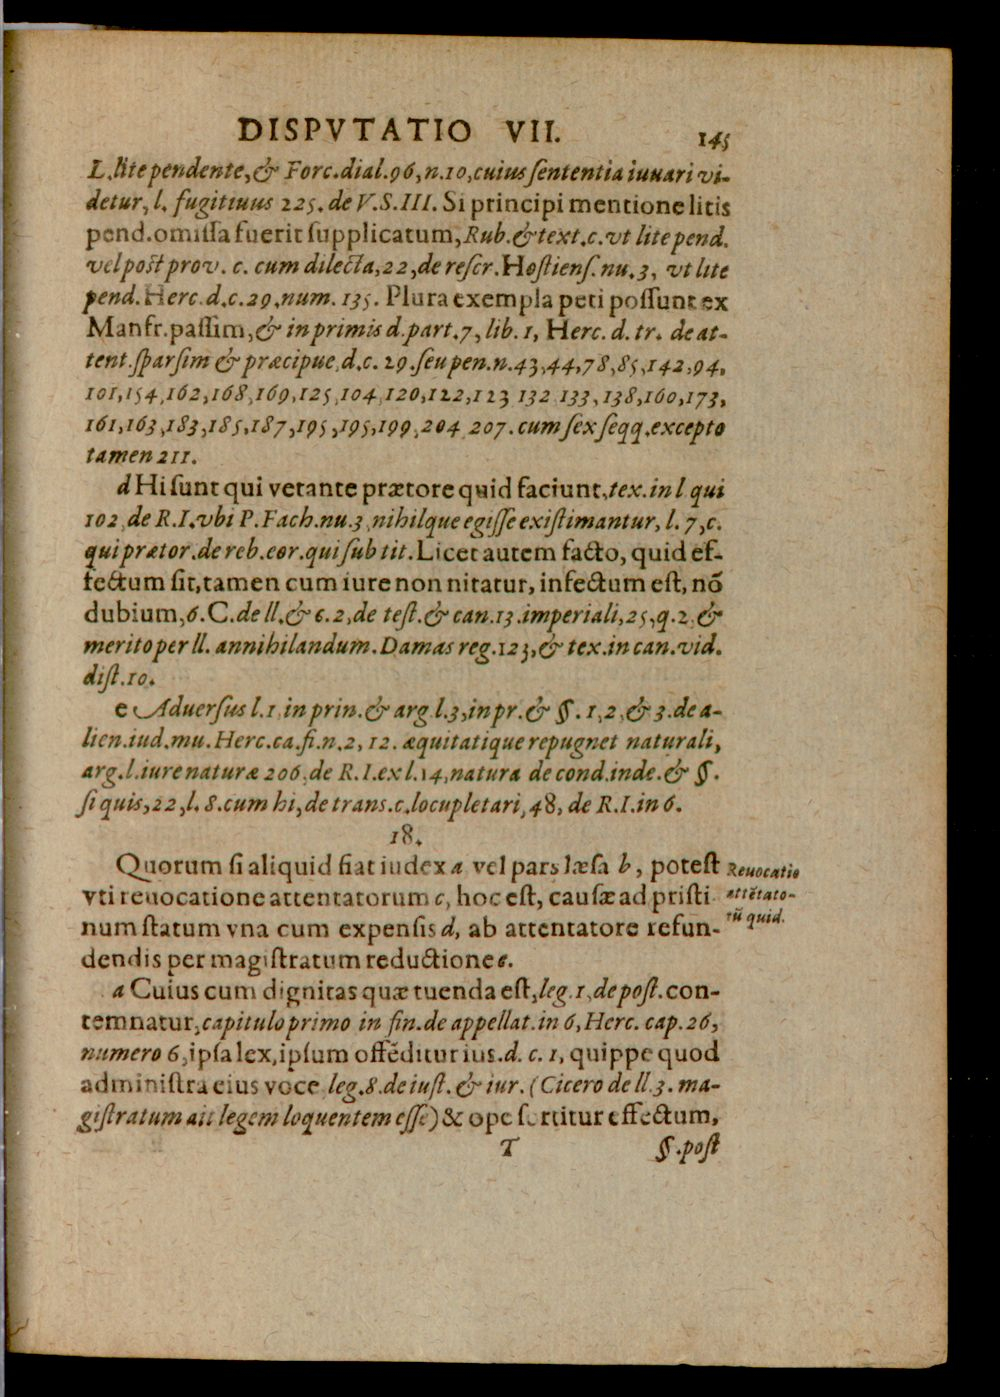 DISPVTATIO VII. 145
L. lite pendente, & Forc. dial. 96, n. 10, cuius sententia iuuari vi-
detur, l. fugitiuus 225. de V.S.III. Si principi mentione litis
pend. omissa fuerit supplicatum, Rub. & text. c. vt lite pend.
vel post prov. c. cum dilecta, 22, de rescr. Hostiens. nu. 3, vt lite
pend. Herc. d. c. 29, num. 135. Plura exempla peti possunt ex
Manfr. passim, & in primis d. part. 7, lib. 1, Herc. d. tr. de at-
tent. sparsim & præcipue, d. c. 29. seu pen. n. 43, 44, 78, 85, 142, 94,
101, 154, 162, 168, 169, 125, 104, 120, 122, 123 132 133, 138, 160, 173,
161, 163, 183, 185, 187, 195, 195, 199, 204 207. cum sex seqq. excepto
tamen 211.
d Hi sunt qui vetante prætore quid faciunt, tex. in l qui
102, de R.I. vbi P. Fach. nu. 3, nihilque egisse existimantur, l. 7, c.
qui prætor. de reb. eor. qui sub tit. Licet autem facto, quid ef-
fectum sit, tamen cum iure non nitatur, infectum est, nō
dubium, 6. C. de ll. & c. 2, de test. & can. 13. imperiali, 25, q. 2, &
merito per ll. annihilandum. Damas reg. 123, & tex. in can. vid.
dist. 10.
e Aduersus l. 1, in prin. & arg l. 3, in pr. & §. 1, 2, & 3. de a-
lien. iud. mu. Herc. ca. fi. n. 2, 12. æquitatique repugnet naturali,
arg. l. iure naturæ 206, de R.I. ex l. 14, natura de cond. inde. & §.
si quis, 22, l. 8. cum hi, de trans. c. locupletari, 48, de R.I. in 6.
18.
Quorum si aliquid fiat iudex a vel pars læsa b, potest
vti reuocatione attentatorum c, hoc est, causæ ad pristi
num statum vna cum expensis d, ab attentatore refun-
dendis per magistratum reductione e.
Reuocatio
attētato-
rū quid.
a Cuius cum dignitas quæ tuenda est, leg. 1, de post. con-
temnatur, capitulo primo in fin. de appellat. in 6, Herc. cap. 26,
numero 6, ipsa lex, ipsum offēditur ius. d. c. 1, quippe quod
administra eius voce leg. 8. de iust. & iur. (Cicero de ll. 3. ma-
gistratum ait legem loquentem esse) & ope sortitur effectum,
T §. post